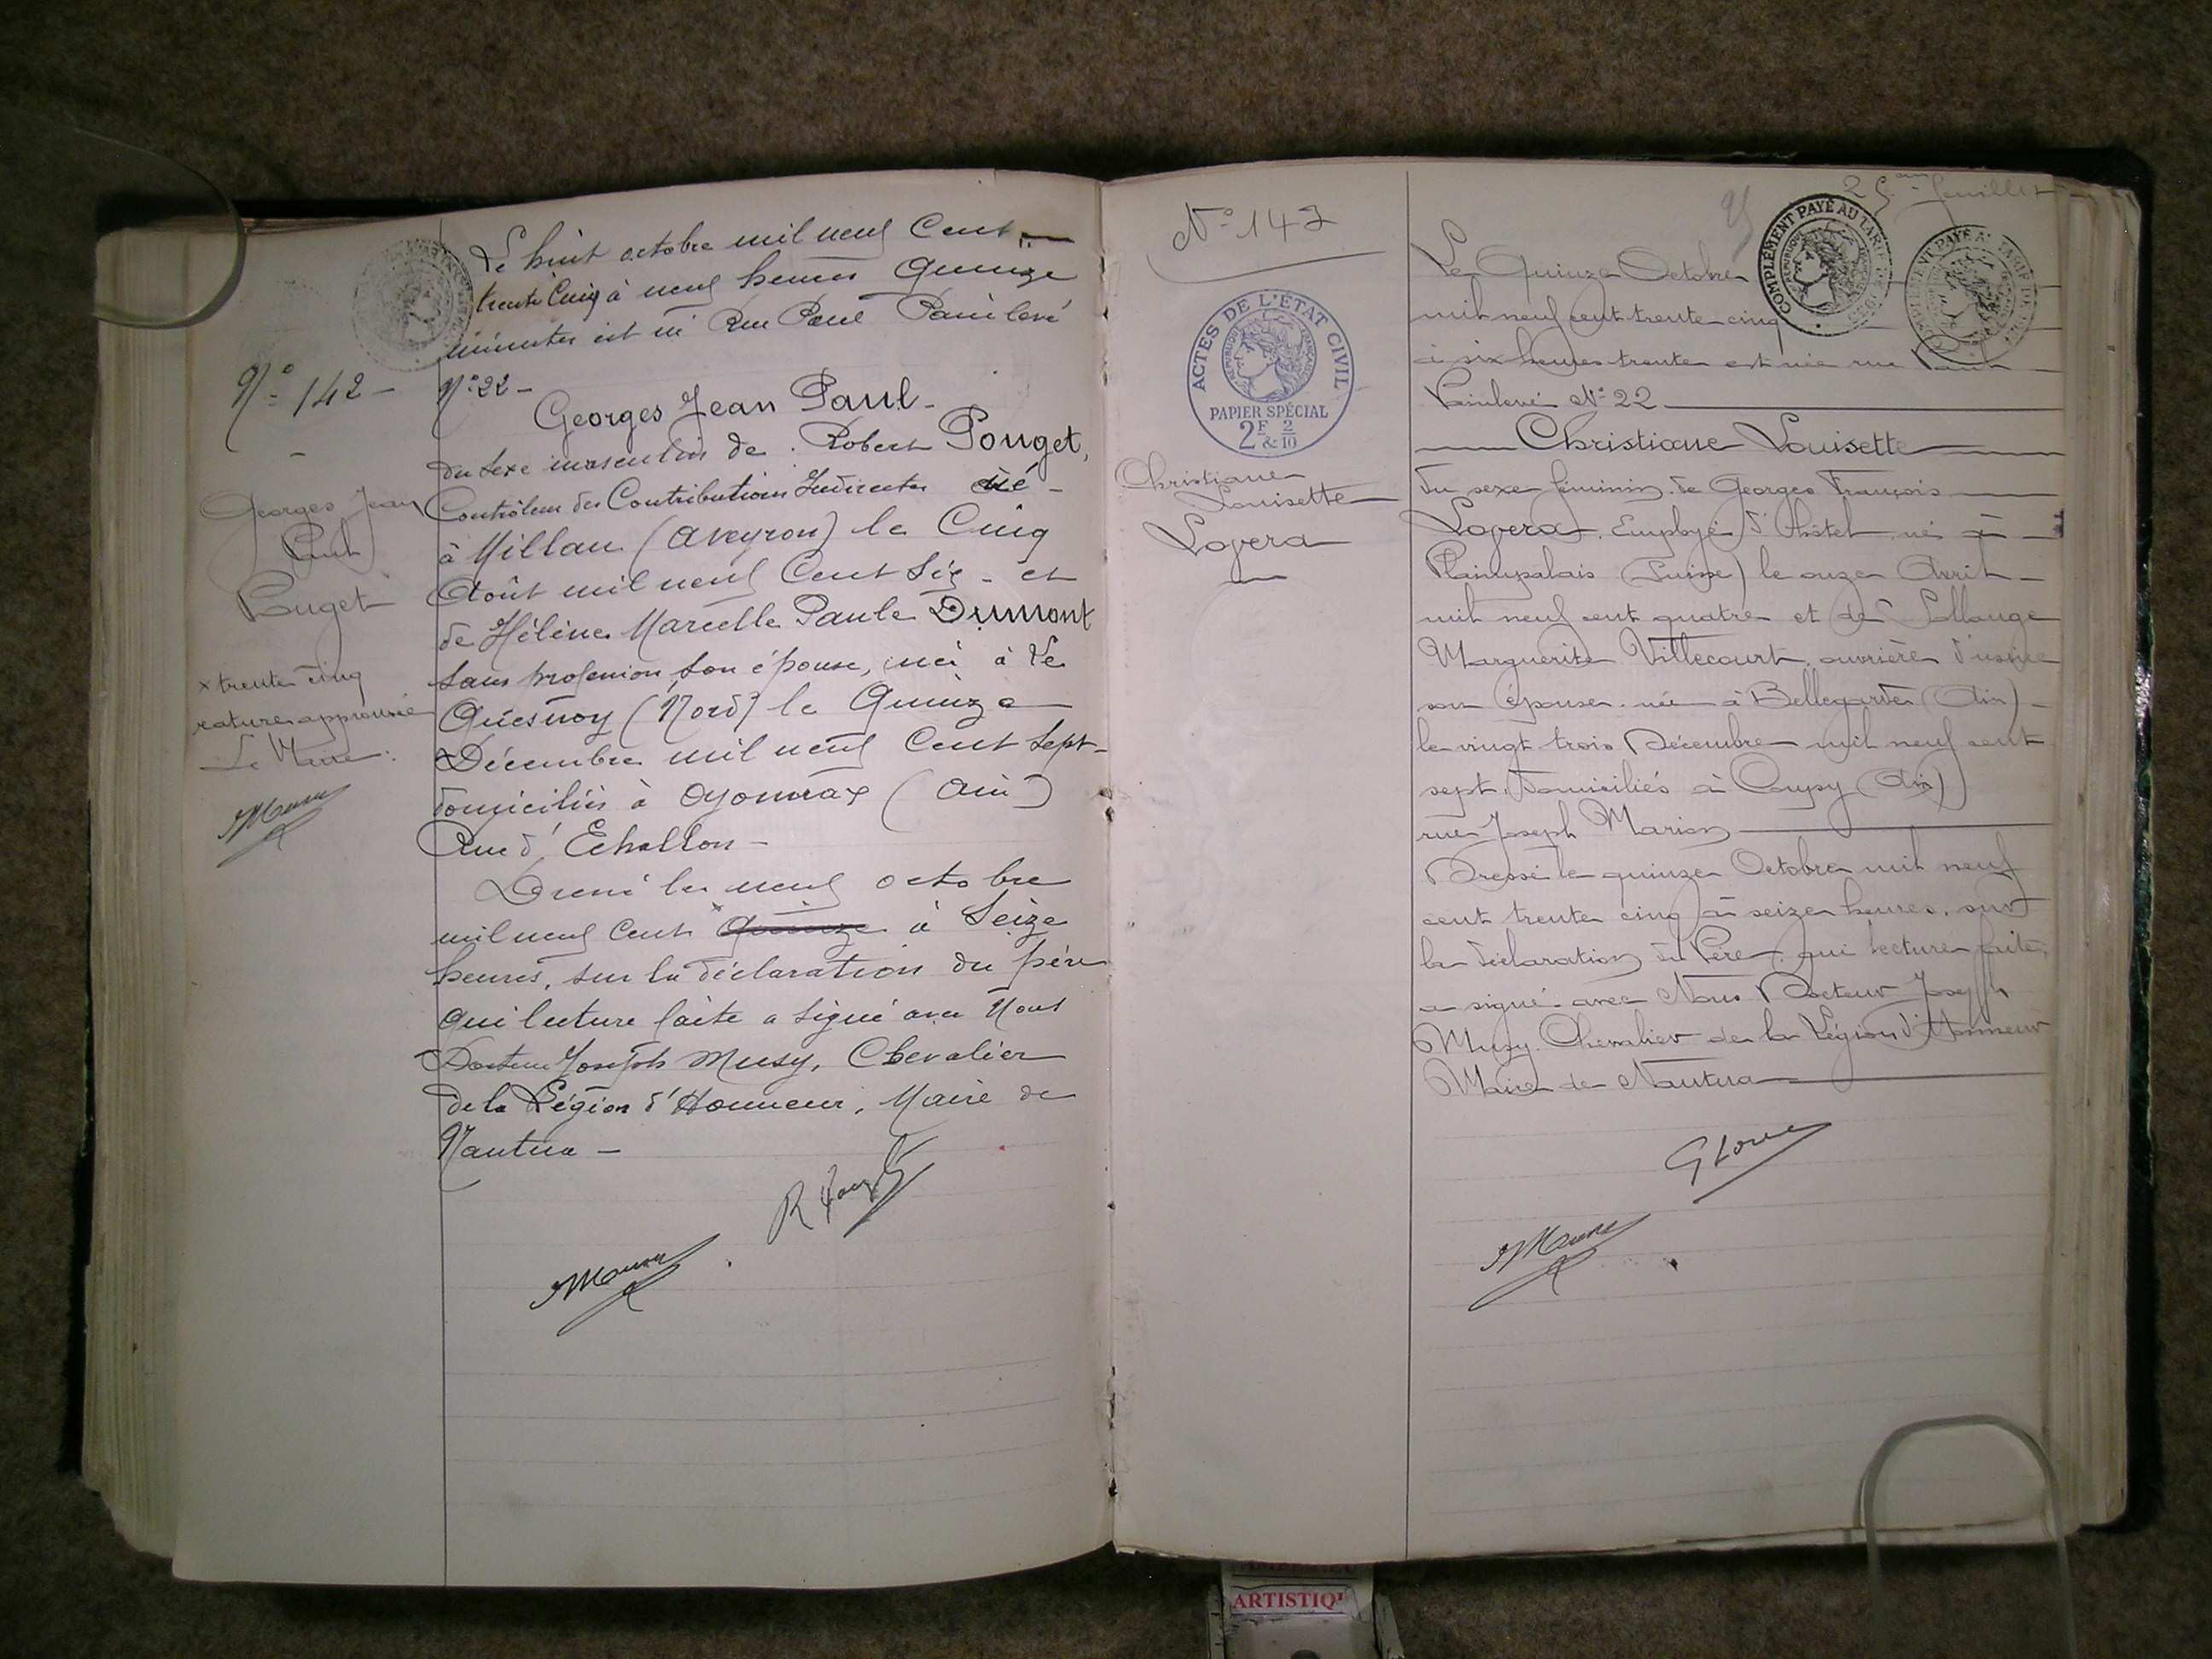 Le huit octobre mil neuf Cent
trente Cinq à neuf heures Quinze
minutes est né Rue Paul Painlevé
N° 142 -
N° 22 -
Georges Jean Paul -
du sexe masculin de Robert Pouget,
Contrôleur des Contributions Indirectes né -
à Millau (Aveyron) le Cinq
Août mil neuf Cent Six - et
de Hélène Marcelle Paule Dumont
sans profession, son épouse, née à Le
Quesnoy (Nord) le Quinze
Décembre mil neuf Cent Sept -
domiciliés à Oyonnax (Ain)
Rue d'Echallon -
Dressé le neuf octobre
mil neuf Cent x Quinze à Seize
heures, sur la déclaration du père
qui lecture faite a signé avec Nous
Docteur Joseph Musy, Chevalier
de la Légion d'Honneur, Maire de
Nantua -
Georges Jean
Paul
Pouget
x trente cinq
rature approuvée
Le Maire :
R Pouget
N° 147
ACTES DE L'ÉTAT CIVIL
RÉPUBLIQUE FRANÇAISE
PAPIER SPÉCIAL
2F & 2/10
Christiane
Louisette
Lovera
25 feuillet
25
COMPLÉMENT PAYÉ AU TARIF DE
COMPLÉMENT PAYÉ AU TARIF DE
Le Quinze Octobre
mil neuf cent trente cinq
à six heures trente est née rue Paul
Painlevé N° 22
Christiane Louisette
du sexe féminin de Georges François
Lovera, Employé d'hôtel, né à
Plainpalais (Suisse) le onze Avril
mil neuf cent quatre et de Sollange
Marguerite Villecourt, ouvrière d'usine
son épouse, née à Bellegarde (Ain)
le vingt trois Décembre mil neuf cent
sept, domiciliés à Coupy (Ain)
rue Joseph Marion
Dressé le quinze Octobre mil neuf
cent trente cinq à seize heures, sur
la déclaration du Père, qui lecture faite,
a signé avec Nous Docteur Joseph
Musy, Chevalier de la Légion d'Honneur
Maire de Nantua
ARTISTIQ